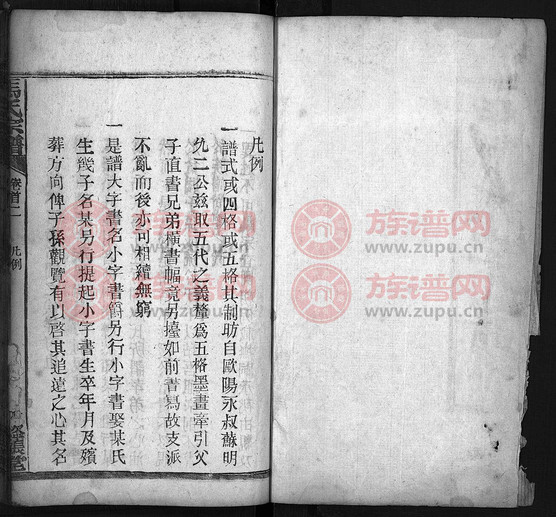 凡例
一譜式或四格或五格其制昉自歐陽永叔蘇明
允二公茲取五代之義釐為五格墨畫牽引父
子直書兄弟橫書幅竟另擡如前書焉故支派
不亂而後亦可相續無窮
一是譜大字書名小字書爵另行小字書娶某氏
生幾子名某另行提起小字書生卒年月及殯
葬方向俾子孫觀覽有以啓其追遠之心其名
馬氏宗譜
卷首二
凡例
族谱网
www.zupu.cn
族谱网
www.zupu.cn
族谱网
www.zupu.cn
族谱网
www.zupu.cn